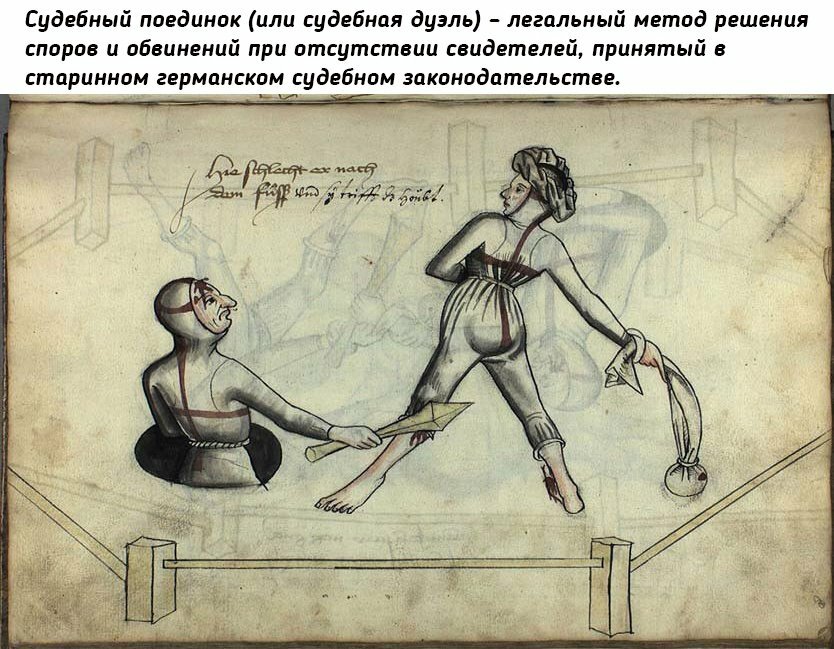 Судебный поединок (или судебная дуэль) – легальный метод решения
споров и обвинений при отсутствии свидетелей, принятый в
старинном германском судебном законодательстве.
Hie schlecht er nach
dem fuͦß und sy trifft dz houbt.